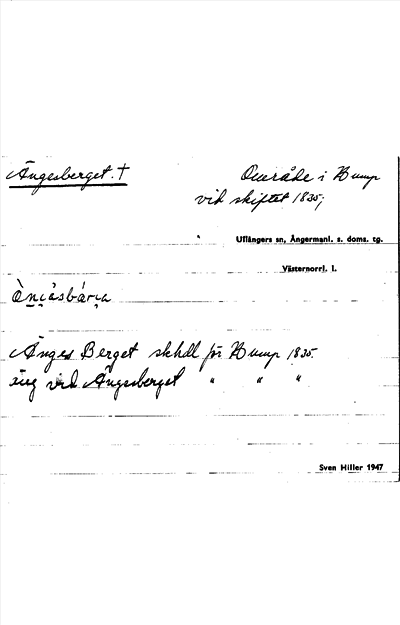 Ängesberget. †
Område i Hump
vid skiftet 1835;
Ullångers sn, Ångermanl. s. doms. tg.
Västernorrl. l.
Änges Berget skhdl för Hump 1835.
äng vid Ängesberget " " "
Sven Hiller 1947